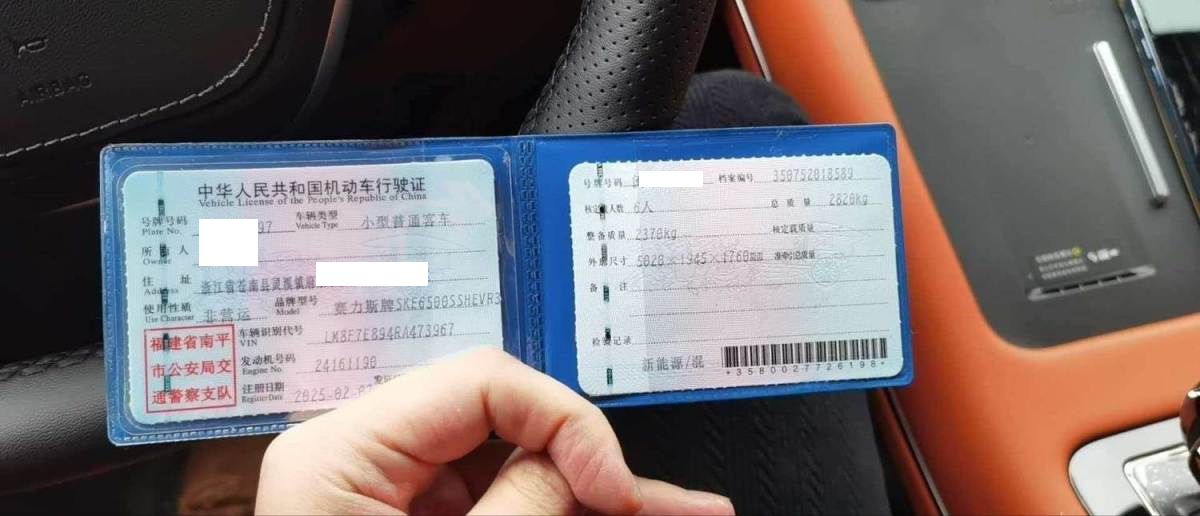 AIRBAG
中华人民共和国机动车行驶证
Vehicle License of the People's Republic of China
号牌号码 97 车辆类型 小型普通客车
Plate No. Vehicle Type
所有人
Owner
住址 浙江省苍南县灵溪镇
Address
使用性质 非营运 品牌型号 赛力斯牌SKE6500SSHEVR3
Use Character Model
福建省南平
市公安局交
通警察支队
车辆识别代号 LM8F7E894RA473967
VIN
发动机号码 24161190
Engine No.
注册日期 2025-02-
Register Date
号牌号码 档案编号 350752018589
核定载人数 6人 总质量 2820kg
整备质量 2370kg 核定载质量
外廓尺寸 5020×1945×1760mm 准牵引总质量
备注
检验记录
新能源/混
*3580027726198*